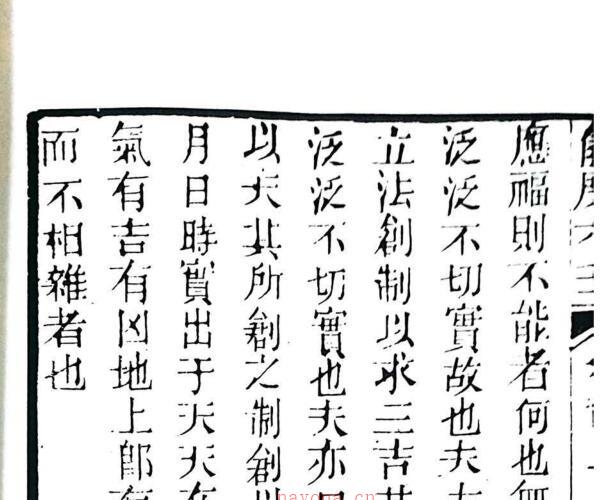 應福則不能者何也
泛泛不切實故也夫
立法創制以求三吉
泛泛不切實也夫亦
以夫其所創之制創
月日時實出于天天
氣有吉有凶地上即有
而不相雜者也
nayona.cn